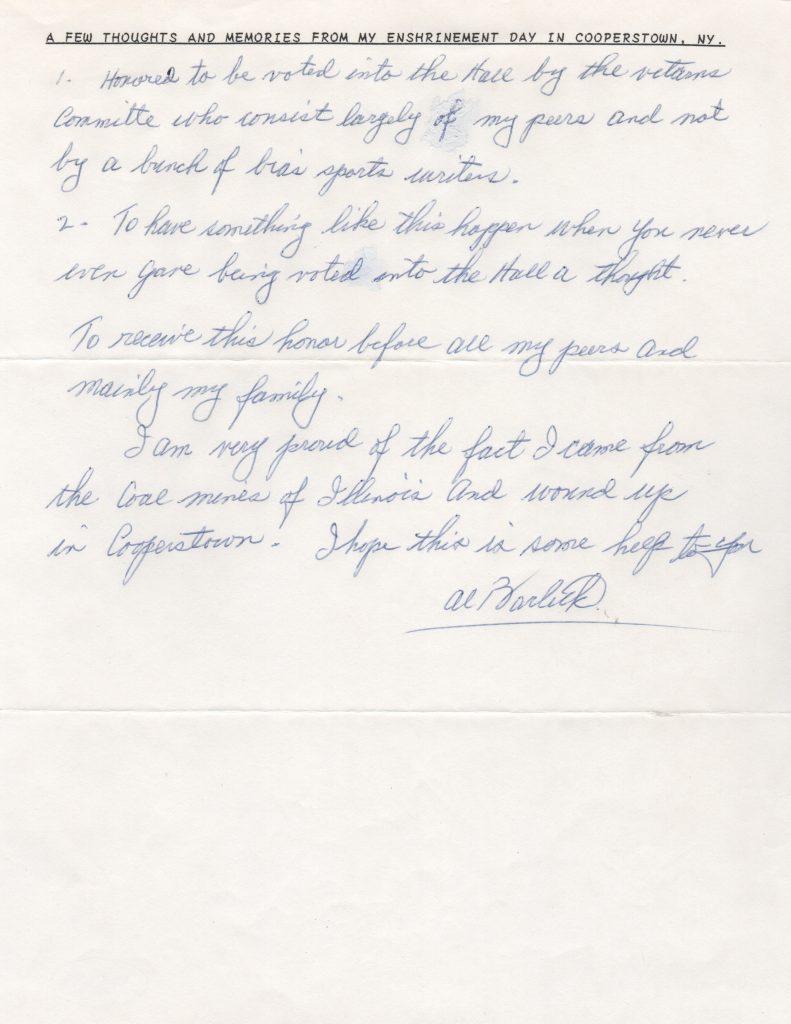 A FEW THOUGHTS AND MEMORIES FROM MY ENSHRINEMENT DAY IN COOPERSTOWN, NY.
1. Honored to be voted into the Hall by the vetarns
Committe who consist largely of my peers and not
by a bunch of bias sports writers.
2- To have something like this happen when you never
even gave being voted into the Hall a thought.
To receive this honor before all my peers and
mainly my family.
I am very proud of the fact I came from
the coal mines of Illinois and wound up
in Cooperstown. I hope this is some help to you
Al Barlick